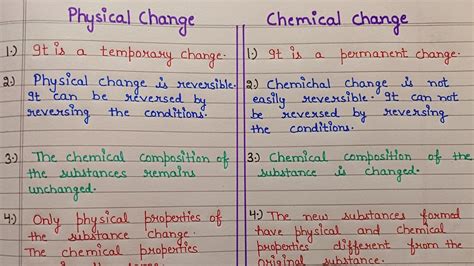 Physical Change
1.) It is a temporary change.
2.) Physical change is reversible.
It can be reversed by
reversing the conditions.
3.) The chemical composition of
the substances remains
unchanged.
4.) Only physical properties of
the substance change.
The chemical properties
Chemical change
1.) It is a permanent change.
2.) Chemichal change is not
easily reversible. It can not
be reversed by reversing
the conditions.
3.) Chemical composition of the
substance is changed.
4.) The new substances formed
have physical and chemical
properties different from the
original substance.